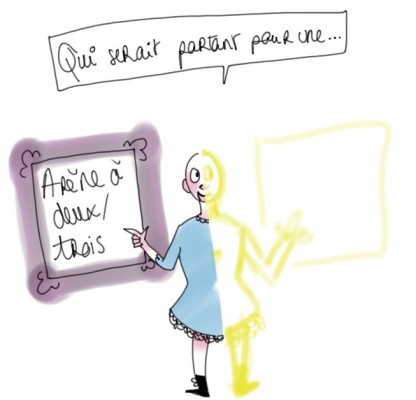 Qui serait partant pour une...
Arène à
deux/
trois